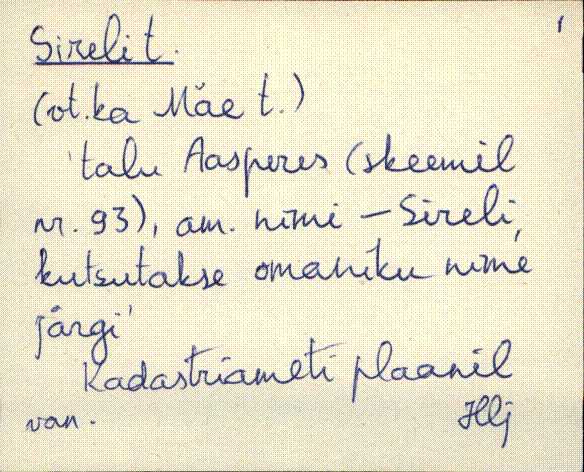 1
Sireli t.
(vt. ka Mäe t.)
'talu Aasperes (skeemil
nr. 93), am. nimi – Sireli,
kutsutakse omaniku nime
järgi'
Kadastriameti plaanil
van. Hlj